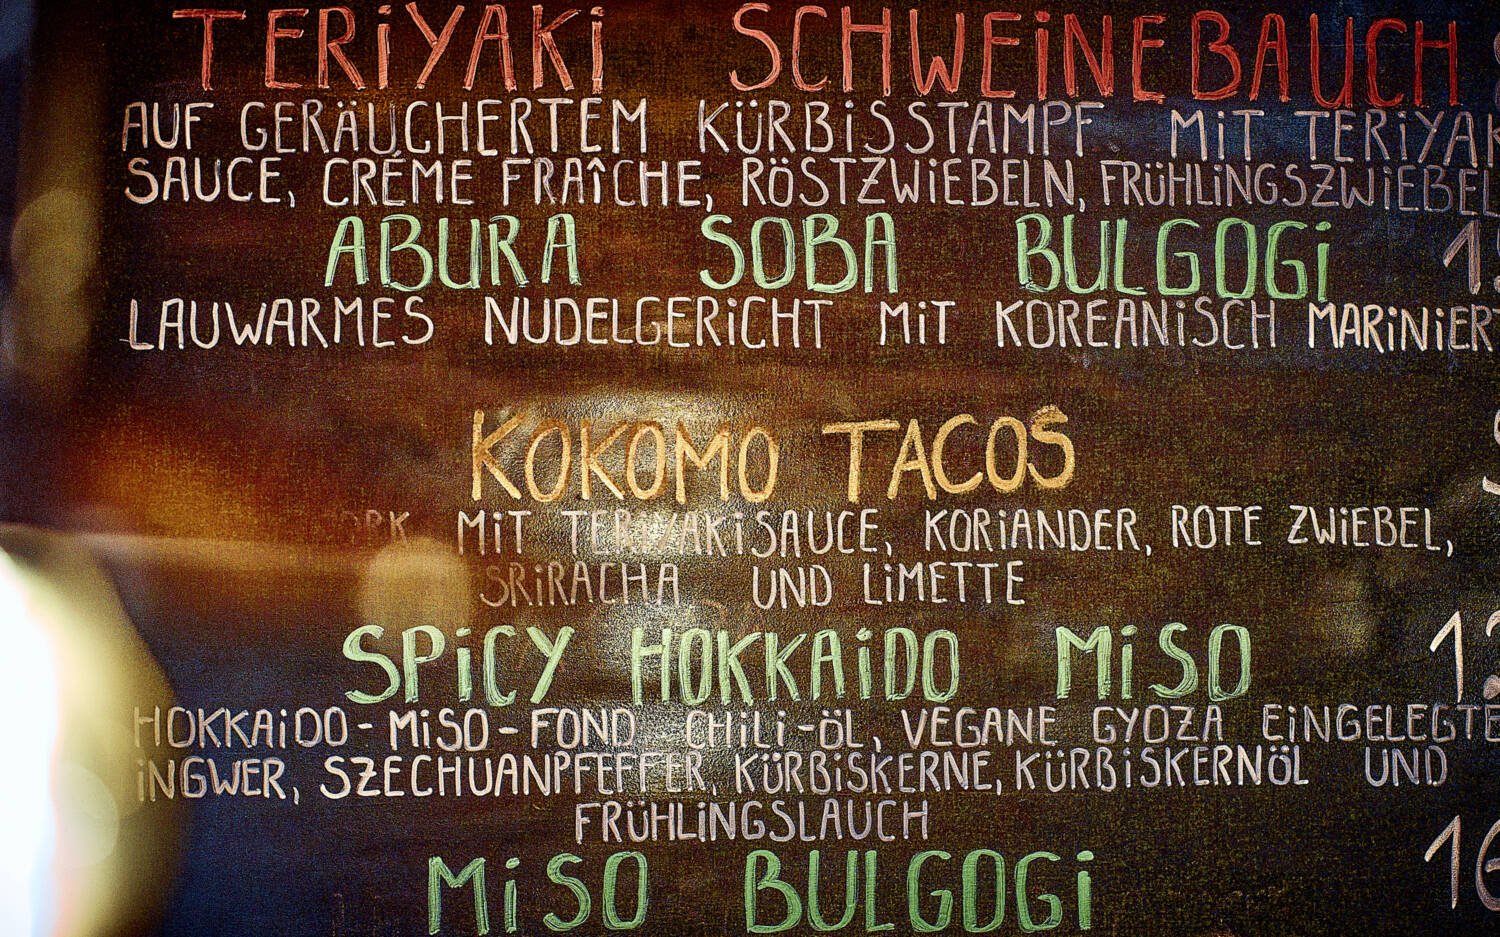 TERIYAKI SCHWEINEBAUCH
AUF GERÄUCHERTEM KÜRBISSTAMPF MIT TERIYAK
SAUCE, CRÉME FRAÎCHE, RÖSTZWIEBELN, FRÜHLINGSZWIEBEL
ABURA SOBA BULGOGI 1
LAUWARMES NUDELGERICHT MIT KOREANISCH MARINIERT
KOKOMO TACOS
MIT TERIYAKISAUCE, KORIANDER, ROTE ZWIEBEL,
SRIRACHA UND LIMETTE
SPICY HOKKAIDO MISO 13
HOKKAIDO-MISO-FOND CHILI-ÖL, VEGANE GYOZA EINGELEGTE
INGWER, SZECHUANPFEFFER, KÜRBISKERNE, KÜRBISKERNÖL UND
FRÜHLINGSLAUCH
MISO BULGOGI 16